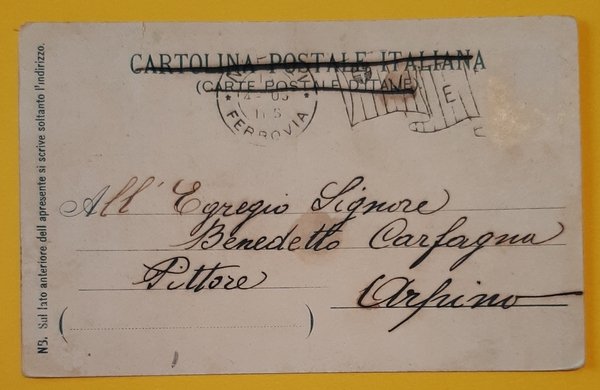 CARTOLINA POSTALE ITALIANA
(CARTE POSTALE D'ITALIE)
FERROVIA
E
All' Egregio Signore
Benedetto Carfagna
Pittore
Arpino
NB. Sul lato anteriore dell apresente si scrive soltanto l'indirizzo.